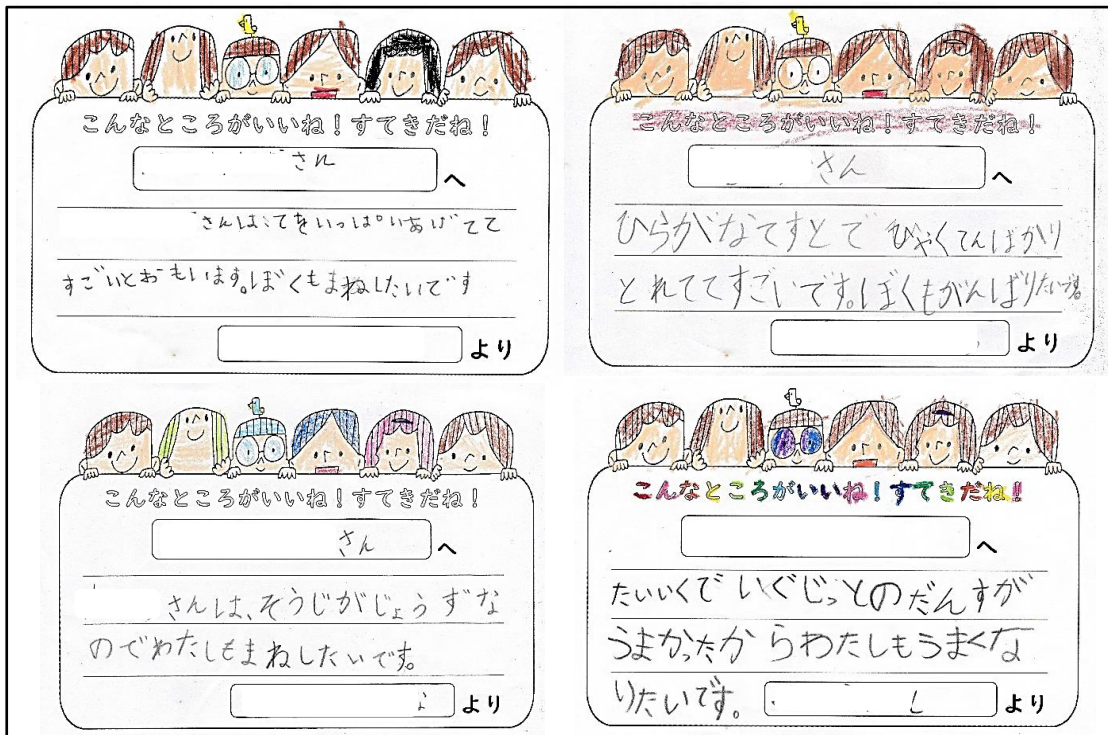 こんなところがいいね！すてきだね！
さん
へ
さんは、てをいっぱいあげてて
すごいとおもいます。ぼくもまねしたいです
より
こんなところがいいね！すてきだね！
さん
へ
ひらがなてすとで ひゃくてんばかり
とれててすごいです。ぼくもがんばりたいです。
より
こんなところがいいね！すてきだね！
さん
へ
さんは、そうじがじょうずな
のでわたしもまねしたいです。
より
こんなところがいいね！すてきだね！
へ
たいいくで いぐじっとのだんすが
うまかったか らわたしもうまくな
りたいです。
より